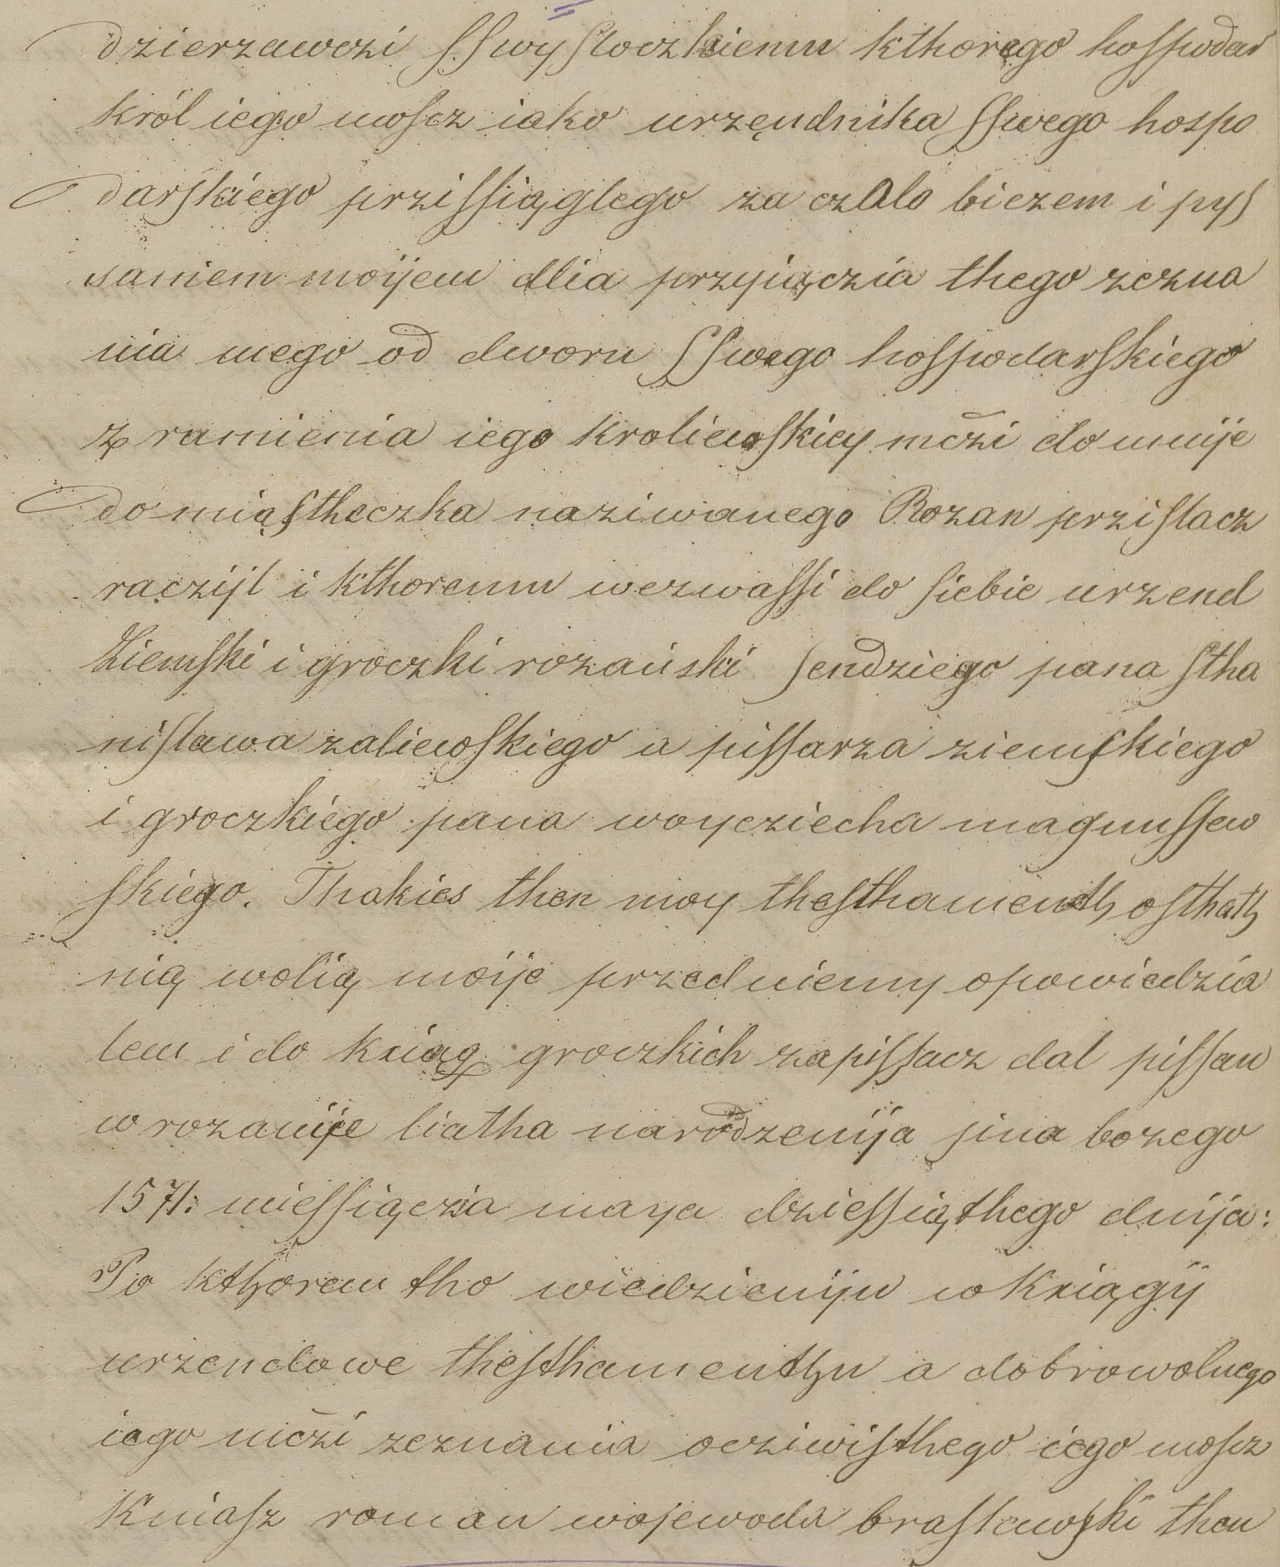 dzierzawczi ſſwyſloczkiemu kthorego hoſſwdar
król iego moscz iako urzęndnika ſſwego hospo
darſkiego prziſſiąglego za czolo biczem i pyſ
saniem moijem dlia przyiączia thego zezna
nia mego od dworu ſſwego hoſſwdarſkiego
z ramienia iego kroliewſkiey mczi do mnije
do miaſtheczka naziwanego Rozan prziſlacz
raczijl i kthoremu wezwaſſi do ſiebie urzend
Ziemſki i groczki rozański ſendziego pana ſtha
niſlawa zaliewſkiego a piſſarza ziemſkiego
i groczkiego pana woyciecha magnuſſew
ſkiego. Thakies then moy theſthamenth oſthath
nią wolią moije przed niemy opowiedzia
lem i do kxiąg groczkich zapiſſacz dal piſſan
w rozanije liatha narodzenija ſina bozego
1571: mieſſiączia maya dzieſſiąthego dnija:
Po kthorem tho wiedzieniju w kxiągij
urzendowe theſthamenthu a dobrowolnego
iego mczi zeznania ocziwiſthego iego moscz
Kniasz roman wojewoda braſlawſki then